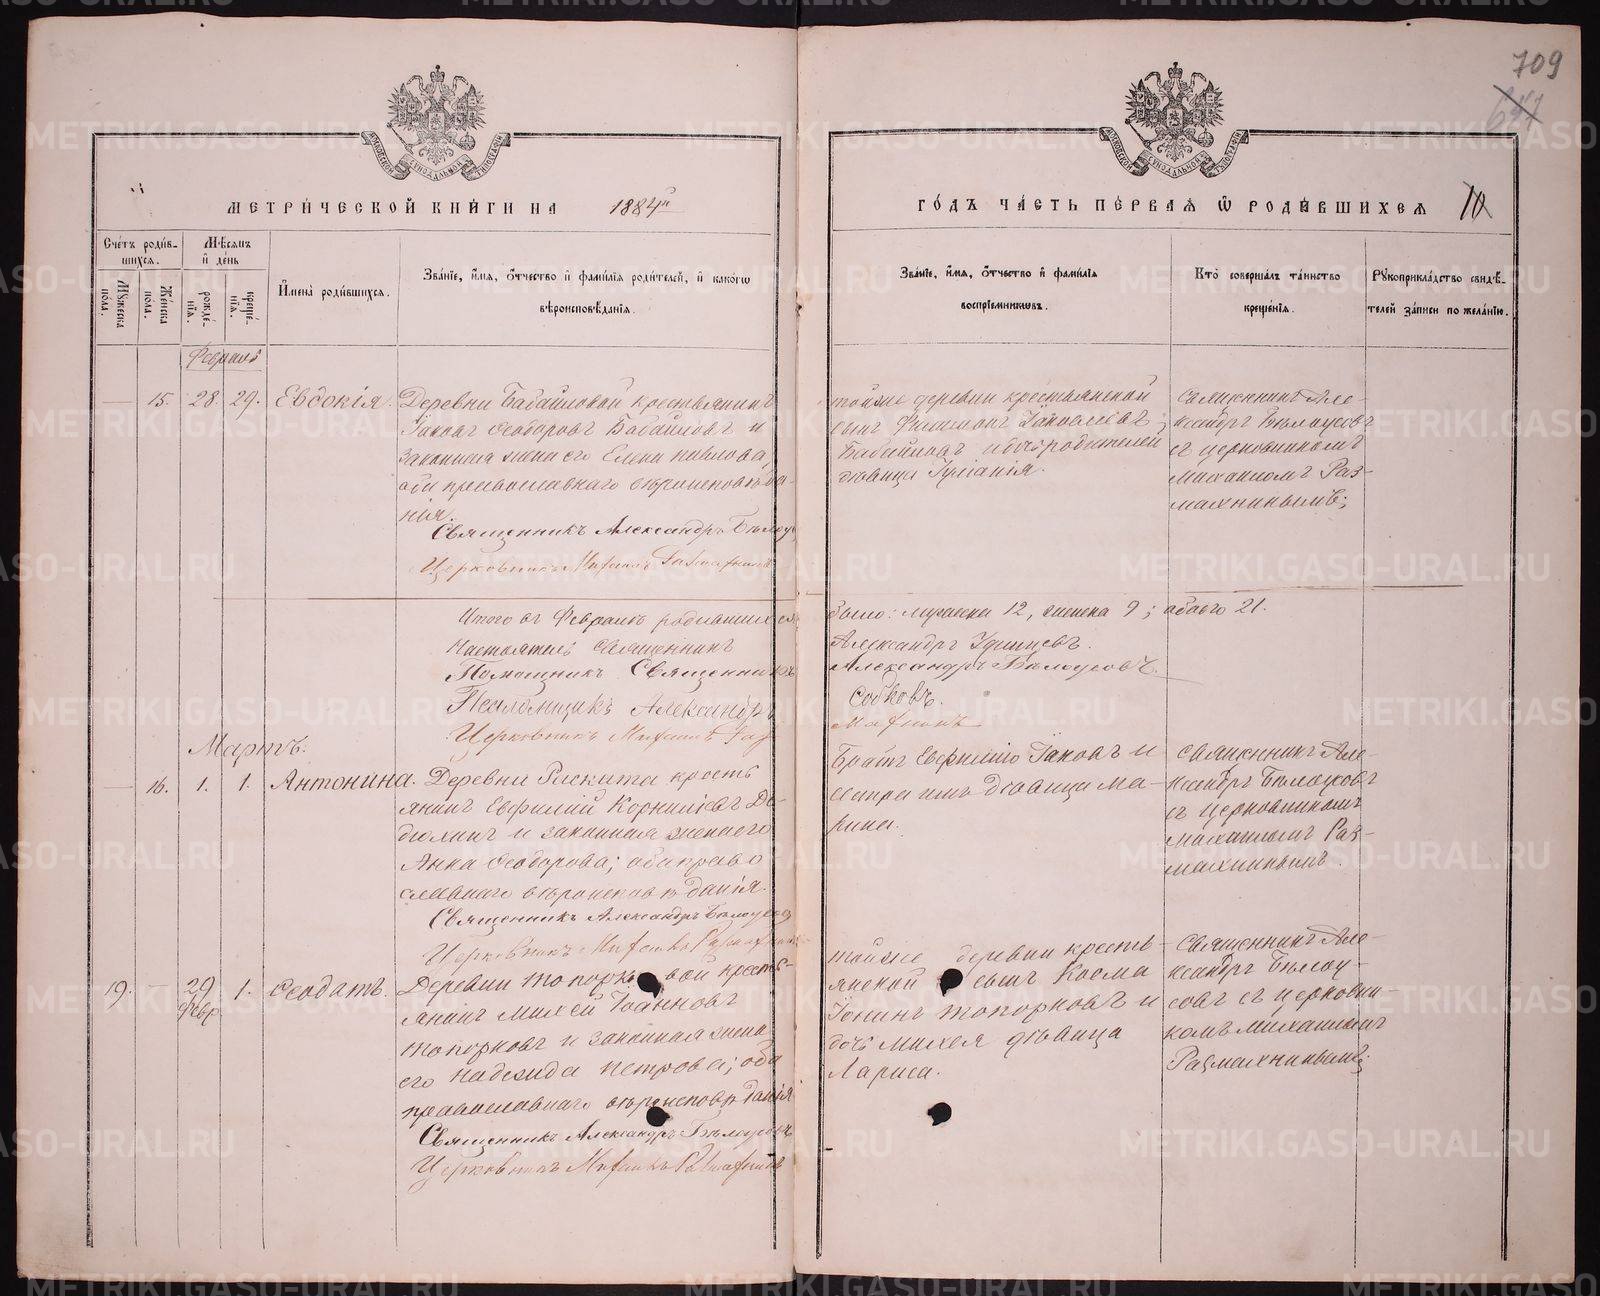 709
МЕТРИЧЕСКОЙ КНИГИ НА 1884й
ГОДЪ ЧАСТЬ ПЕРВАЯ Ѡ РОДИВШИХСЯ 10
Счетъ родив-
шихся.
Мѣсяцъ
и день
Мужеска пола.
Женска пола.
рожде-
нія.
креще-
нія.
Имена родившихся.
Званіе, имя, отчество и фамилія родителей, и какогѡ
вѣроисповѣданія.
Званіе, имя, отчество и фамилія
воспріемникѡвъ.
Кто совершалъ таинство
крещенія.
Рукоприкладство свидѣ-
телей записи по желанію.
Февраль
15. 28. 29. Евдокія.
Деревни Бабаиловой крестьянинъ
Іаковъ Ѳеодоровъ Бабаиловъ и
законная жена его Елена Павлова,
оба православнаго вѣроисповѣда-
нія.
Священникъ Александръ Бѣлоу
Церковникъ Михаилъ Размахнинъ
тойже деревни крестьянской
сынъ Іаковлевъ
Бабаиловъ и дочь родителей
дѣвица
Священникъ Але-
ксандръ Бѣлоусовъ
съ церковникомъ
Михаиломъ Раз-
махнинымъ;
Итого въ Февралѣ родившихся
было: мужеска 12, женска 9; обоего 21.
Настоятель Священникъ
Александръ Удинцевъ.
Помощникъ Священникъ
Александръ Бѣлоусовъ.
Псаломщикъ Александръ
Церковникъ Михаилъ Раз
махнинъ
Мартъ.
16. 1. 1. Антонина.
Деревни Раскита кресть
янинъ Евфимій Корниліевъ Де-
дюхинъ и законная жена его
Анна Ѳеодорова; оба право
славнаго вѣроисповѣданія.
Священникъ Александръ Бѣлоусов
Церковникъ Михаилъ Размахнин
Братъ Евфимію Іаковъ и
сестра имъ дѣвица Ма-
рина.
Священникъ Але-
ксандръ Бѣлоусовъ
съ церковникомъ
Михаиломъ Раз-
махнинымъ.
19. 29 Февр. 1. Ѳеодатъ.
Деревни Топорковой кресть-
янинъ Михей Іоанновъ
Топорковъ и законная жена
его Надежда Петрова; оба
православнаго вѣроисповѣданія
Священникъ Александръ Бѣлоусовъ
Церковникъ Михаилъ Размахнинъ
тойже деревни кресть-
янской сынъ Косма
Іонинъ Топорковъ и
дочь Михея дѣвица
Лариса.
Священникъ Але-
ксандръ Бѣлоу-
совъ съ церковни-
комъ Михаиломъ
Размахнинымъ;
METRIKI.GASO-URAL.RU